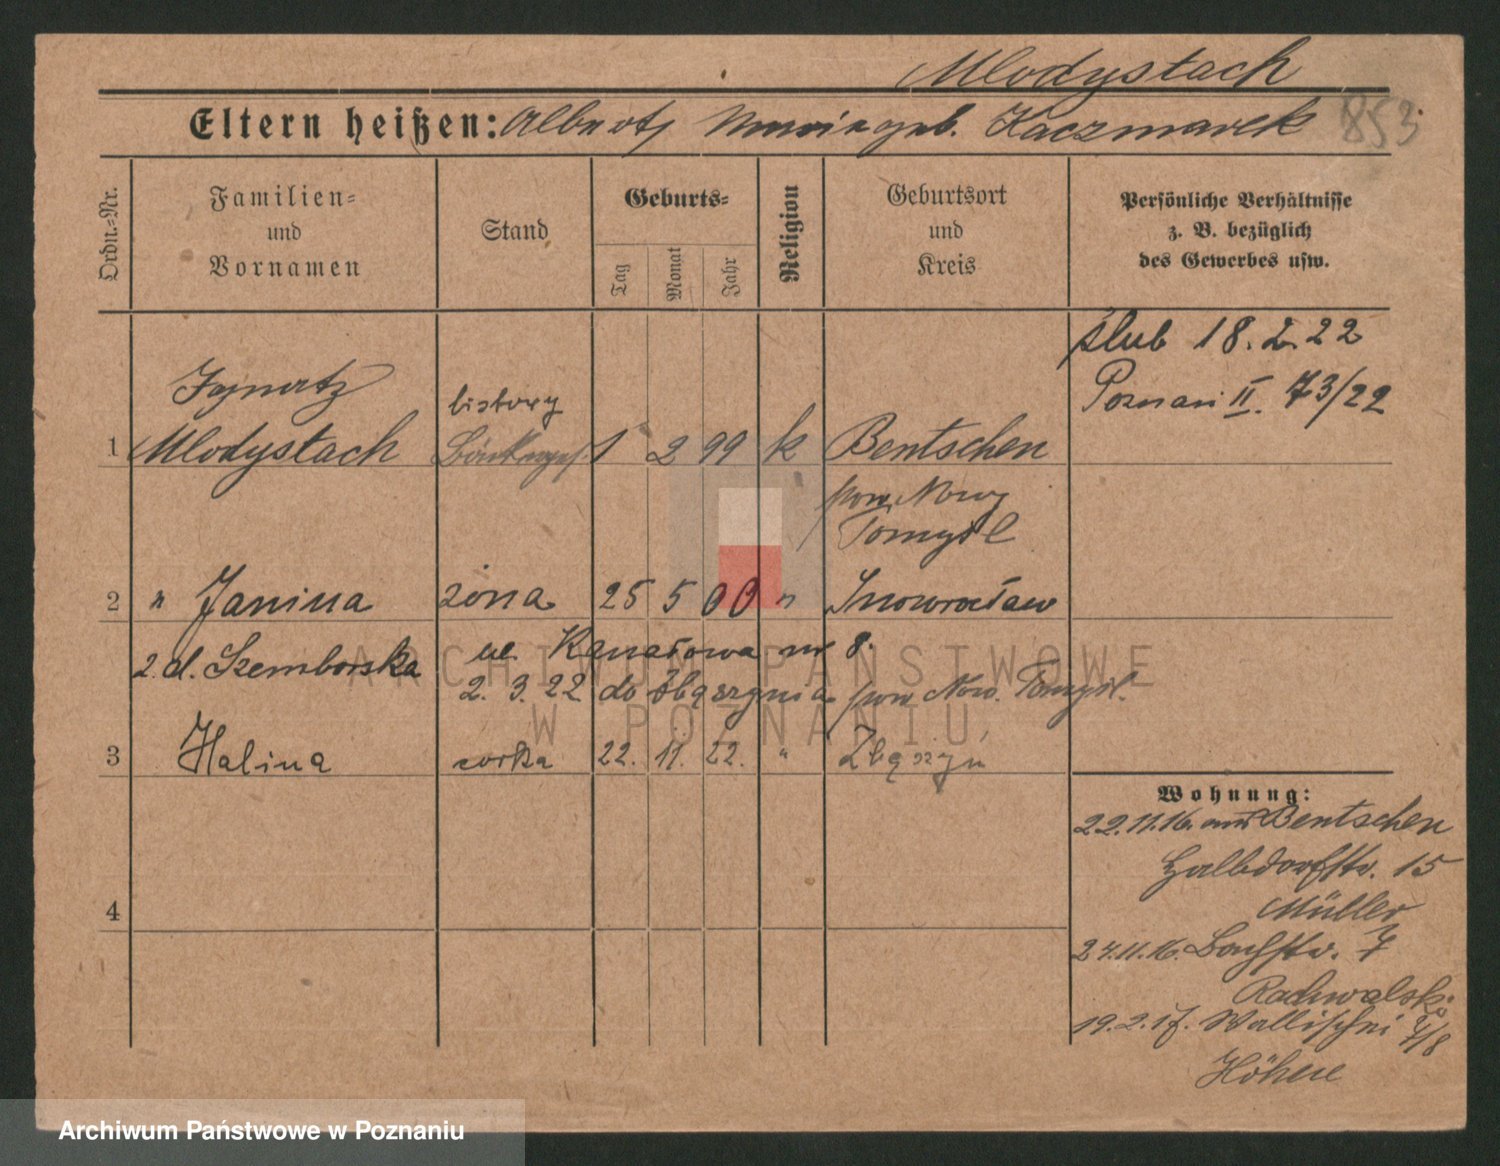 Mlodystach
Eltern heißen: Albert, Maria geb. Kaczmarek
853
Ordn.-Nr.
Familien-
und
Vornamen
Stand
Geburts-
Tag
Monat
Jahr
Religion
Geburtsort
und
Kreis
Persönliche Verhältnisse
z. B. bezüglich
des Gewerbes usw.
ślub 18.2.22
Poznań II. 73/22
Ignatz
listowy
1 Mlodystach 1 2 99 k Bentschen
pow. Nowy
Tomyśl
2 " Janina żona 25 5 00 " Inowrocław
z. d. Szemborska ul. Kanałowa nr 8.
2. 3. 22 do Zbąszynia pow Now. Tomyśl.
3 Halina corka 22. 11. 22. " Zbąszyń
Wohnung:
22.11.16. aus Bentschen
Halbdorfstr. 15
Müller
4
24.11.16. Bachstr. 7
Radwalski
19.2.17. Wallischei 7/8
Höhne
ARCHIWUM PAŃSTWOWE
W POZNANIU
Archiwum Państwowe w Poznaniu